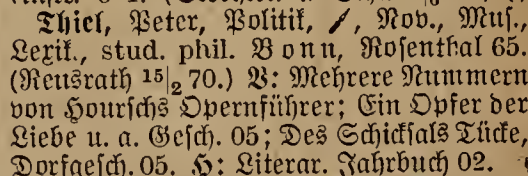 Thiel, Peter, Politik, Nov., Mus.,
Lexik., stud. phil. Bonn, Rosenthal 65.
(Reusrath 15|2 70.) V: Mehrere Nummern
von Hourschs Opernführer; Ein Opfer der
Liebe u. a. Gesch. 05; Des Schicksals Tücke,
Dorfgesch. 05. H: Literar. Jahrbuch 02.